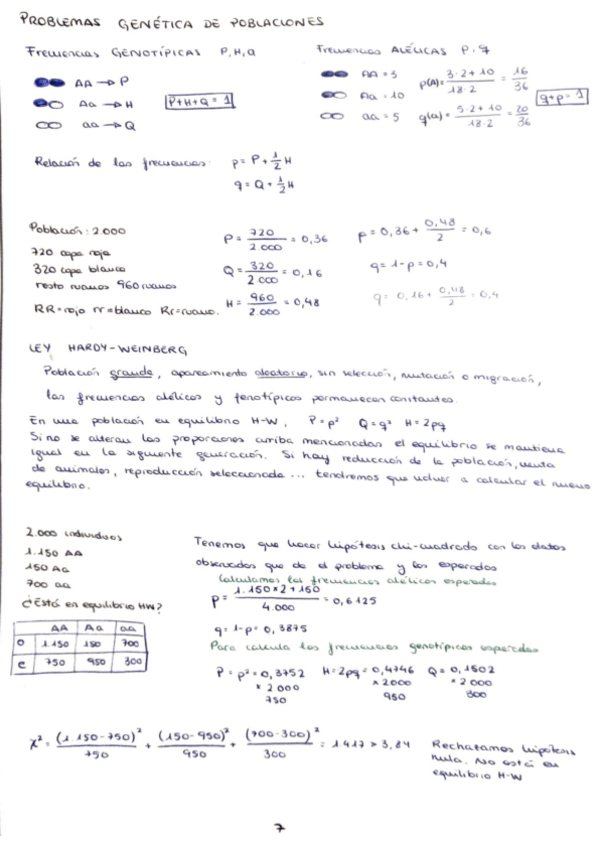 PROBLEMAS GENÉTICA DE POBLACIONES
Frecuencias GENOTÍPICAS P, H, Q
Frecuencias ALÉLICAS p, q
AA → P
Aa → H
aa → Q
P+H+Q = 1
AA = 3
Aa = 10
aa = 5
p(A) = 3·2+10 / 18·2 = 16/36
q(a) = 5·2+10 / 18·2 = 20/36
q+p = 1
Relación de las frecuencias:
p = P + 1/2 H
q = Q + 1/2 H
Población: 2.000
720 capa roja
320 capa blanca
resto ruanos 960 ruanos
RR=rojo rr=blanco Rr=ruano.
P = 720/2.000 = 0,36
Q = 320/2.000 = 0,16
H = 960/2.000 = 0,48
p = 0,36 + 0,48/2 = 0,6
q = 1-p = 0,4
q = 0,16 + 0,48/2 = 0,4
LEY HARDY-WEINBERG
Población grande, apareamiento aleatorio, sin selección, mutación o migración,
las frecuencias alélicas y fenotípicos permanecen constantes.
En una población en equilibrio H-W, P=p² Q=q² H=2pq
Si no se alteran las proporciones arriba mencionadas el equilibrio se mantiene
igual en la siguiente generación. Si hay reducción de la población, venta
de animales, reproducción seleccionada ... tendremos que volver a calcular el nuevo
equilibrio.
2.000 individuos
1.150 AA
150 Aa
700 aa
¿Está en equilibrio HW?
AA Aa aa
O 1.150 150 700
e 750 950 300
Tenemos que hacer hipótesis chi-cuadrado con los datos
observados que da el problema y los esperados
Calculamos las frecuencias alélicas esperadas
P = 1.150×2+150 / 4.000 = 0,6125
q = 1-p = 0,3875
Para calcula las frecuencias genotípicas esperadas
P = p² = 0,3752 H=2pq = 0,4746 Q = 0,1502
×2000 ×2000 ×2.000
750 950 300
χ² = (1.150-750)²/750 + (150-950)²/950 + (700-300)²/300 = 1417 > 3,84
Rechazamos hipótesis
nula. No está en
equilibrio H-W
7